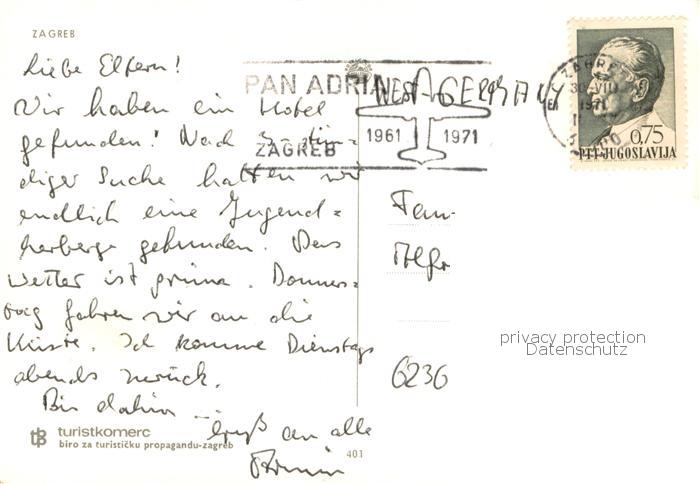 ZAGREB
Liebe Eltern!
Wir haben ein Hotel
gefunden! Nach 5-stün-
diger Suche hatten wir
endlich eine Jugend=
herberge gefunden. Das
Wetter ist prima. Donners=
tag fahren wir an die
Küste. Ich komme Dienstags
abends zurück.
Bis dahin ...
Gruß an alle
Armin
turistkomerc
biro za turističku propagandu-zagreb
401
PAN ADRIA
1961 1971
ZAGREB
WEST GERMANY
ZAGREB
30-VIII
1971
0,75
PTT-JUGOSLAVIJA
Fam.
6236
privacy protection
Datenschutz